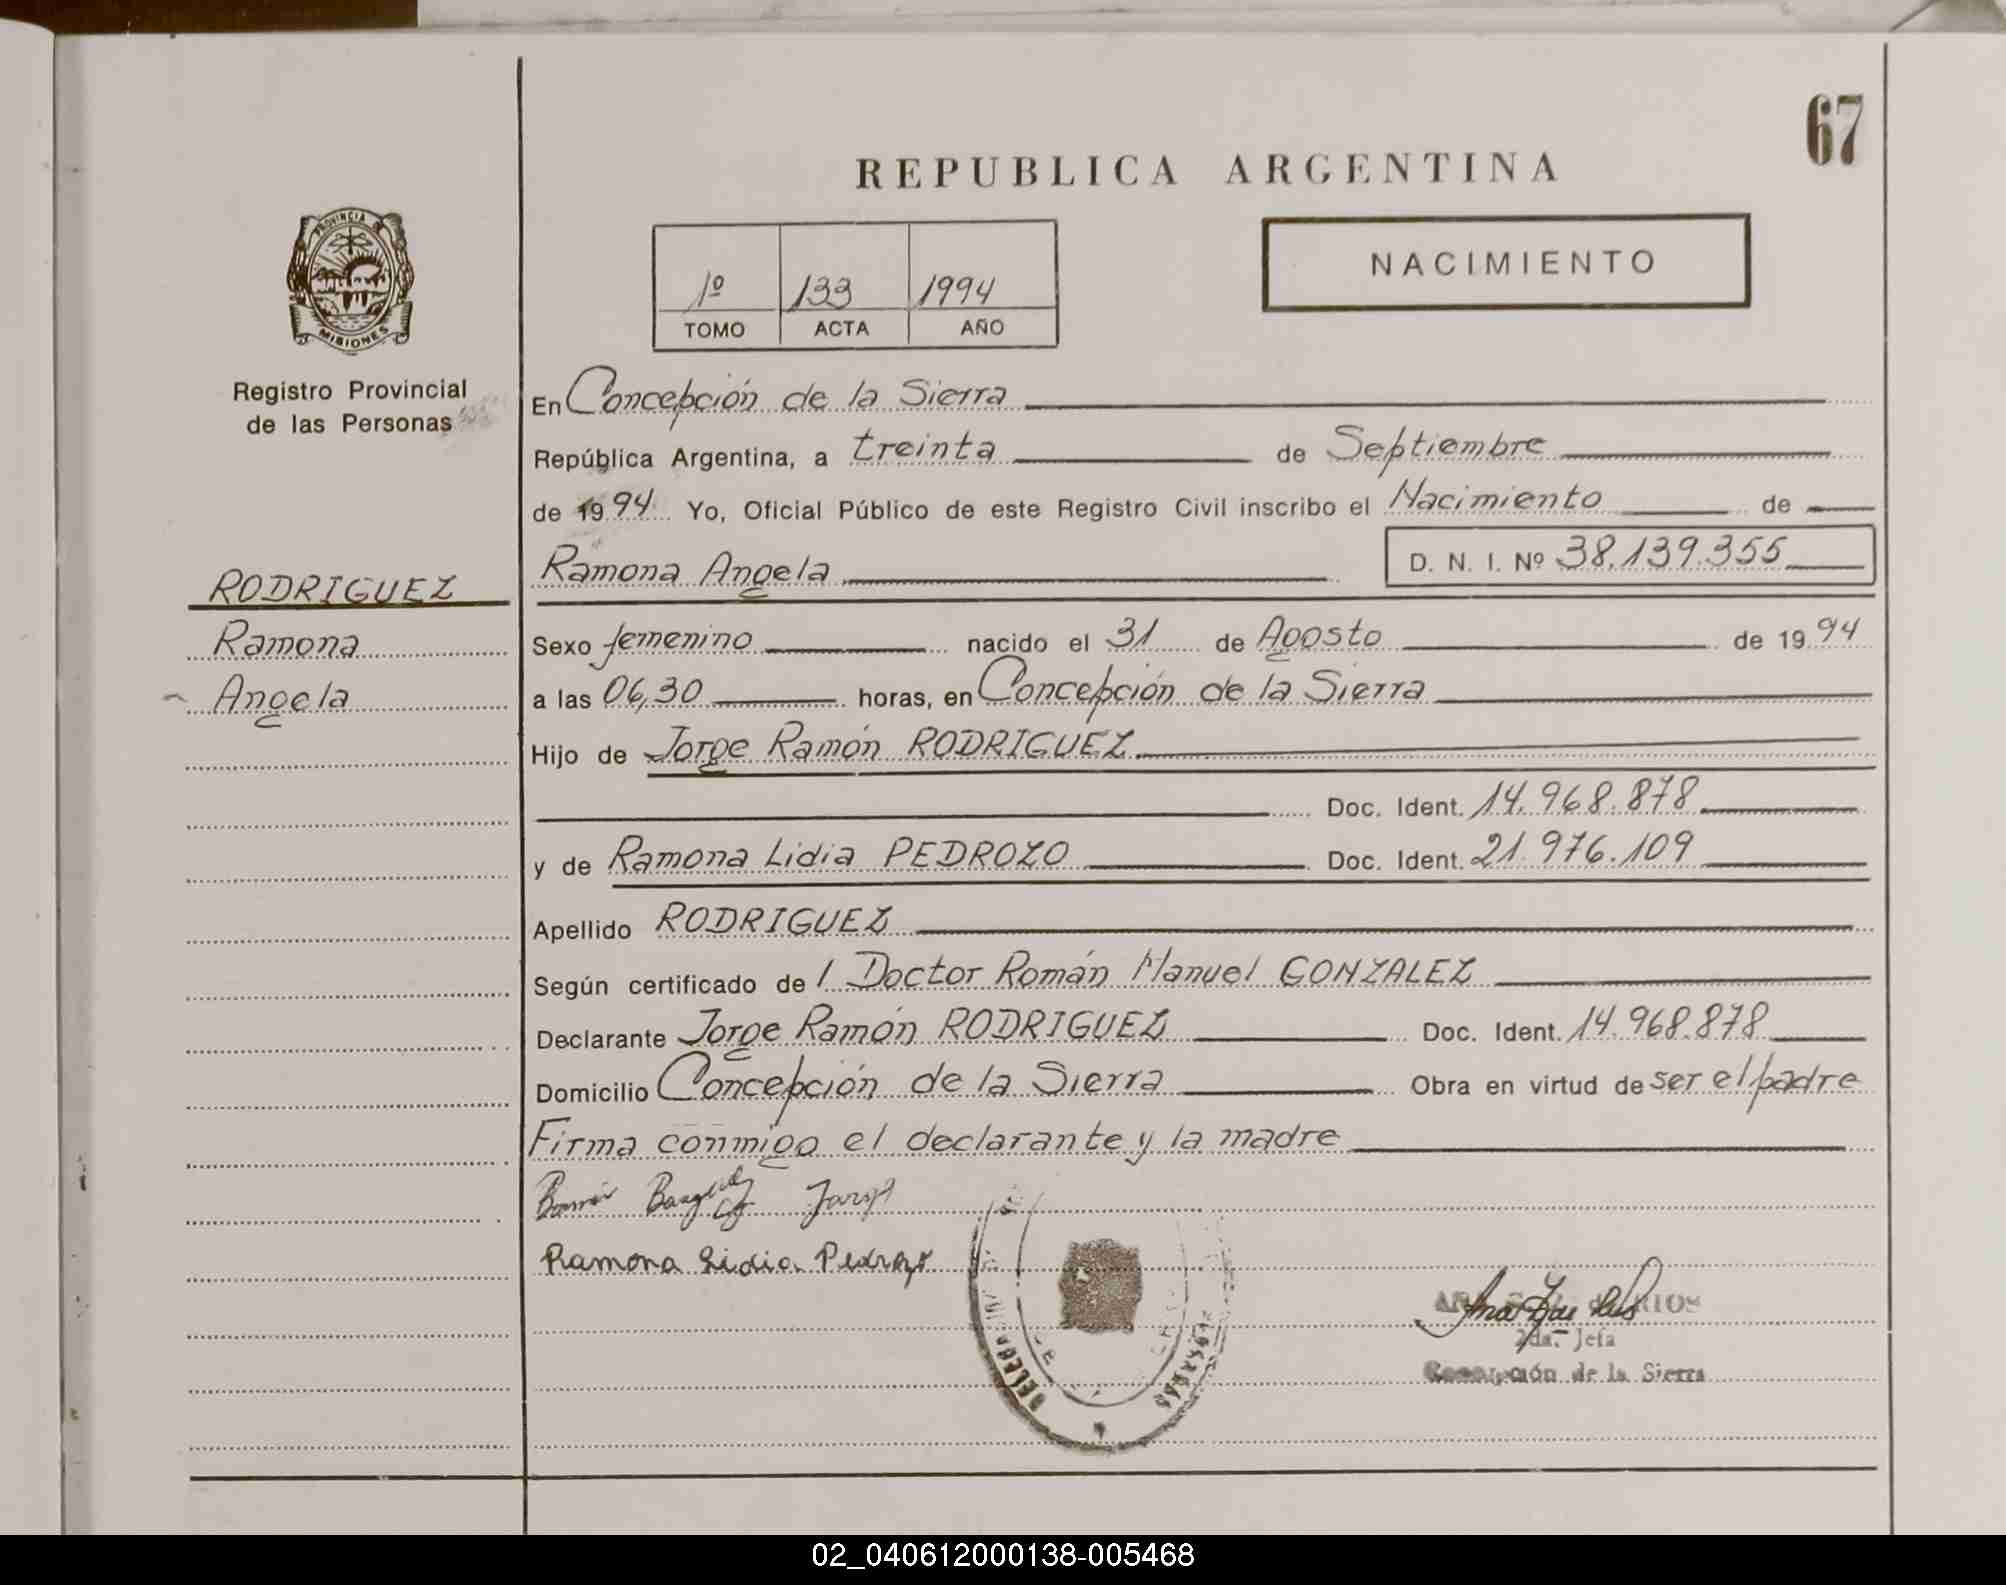 67
REPUBLICA ARGENTINA
PROVINCIA DE
MISIONES
Registro Provincial
de las Personas
1º 133 1994
TOMO ACTA AÑO
NACIMIENTO
En Concepción de la Sierra
República Argentina, a treinta de Septiembre
de 1994 Yo, Oficial Público de este Registro Civil inscribo el Nacimiento de
Ramona Angela D. N. I. Nº 38.139.355
RODRIGUEZ
Ramona
Angela
Sexo femenino nacido el 31 de Agosto de 1994
a las 06,30 horas, en Concepción de la Sierra
Hijo de Jorge Ramón RODRIGUEZ
Doc. Ident. 14.968.878
y de Ramona Lidia PEDROZO Doc. Ident. 21.976.109
Apellido RODRIGUEZ
Según certificado de l Doctor Román Manuel GONZALEZ
Declarante Jorge Ramón RODRIGUEZ Doc. Ident. 14.968.878
Domicilio Concepción de la Sierra Obra en virtud de ser el padre
Firma conmigo el declarante y la madre
Ramona Lidia Pedrozo
RIOS
2da. Jefa
Concepción de la Sierra
02_040612000138-005468